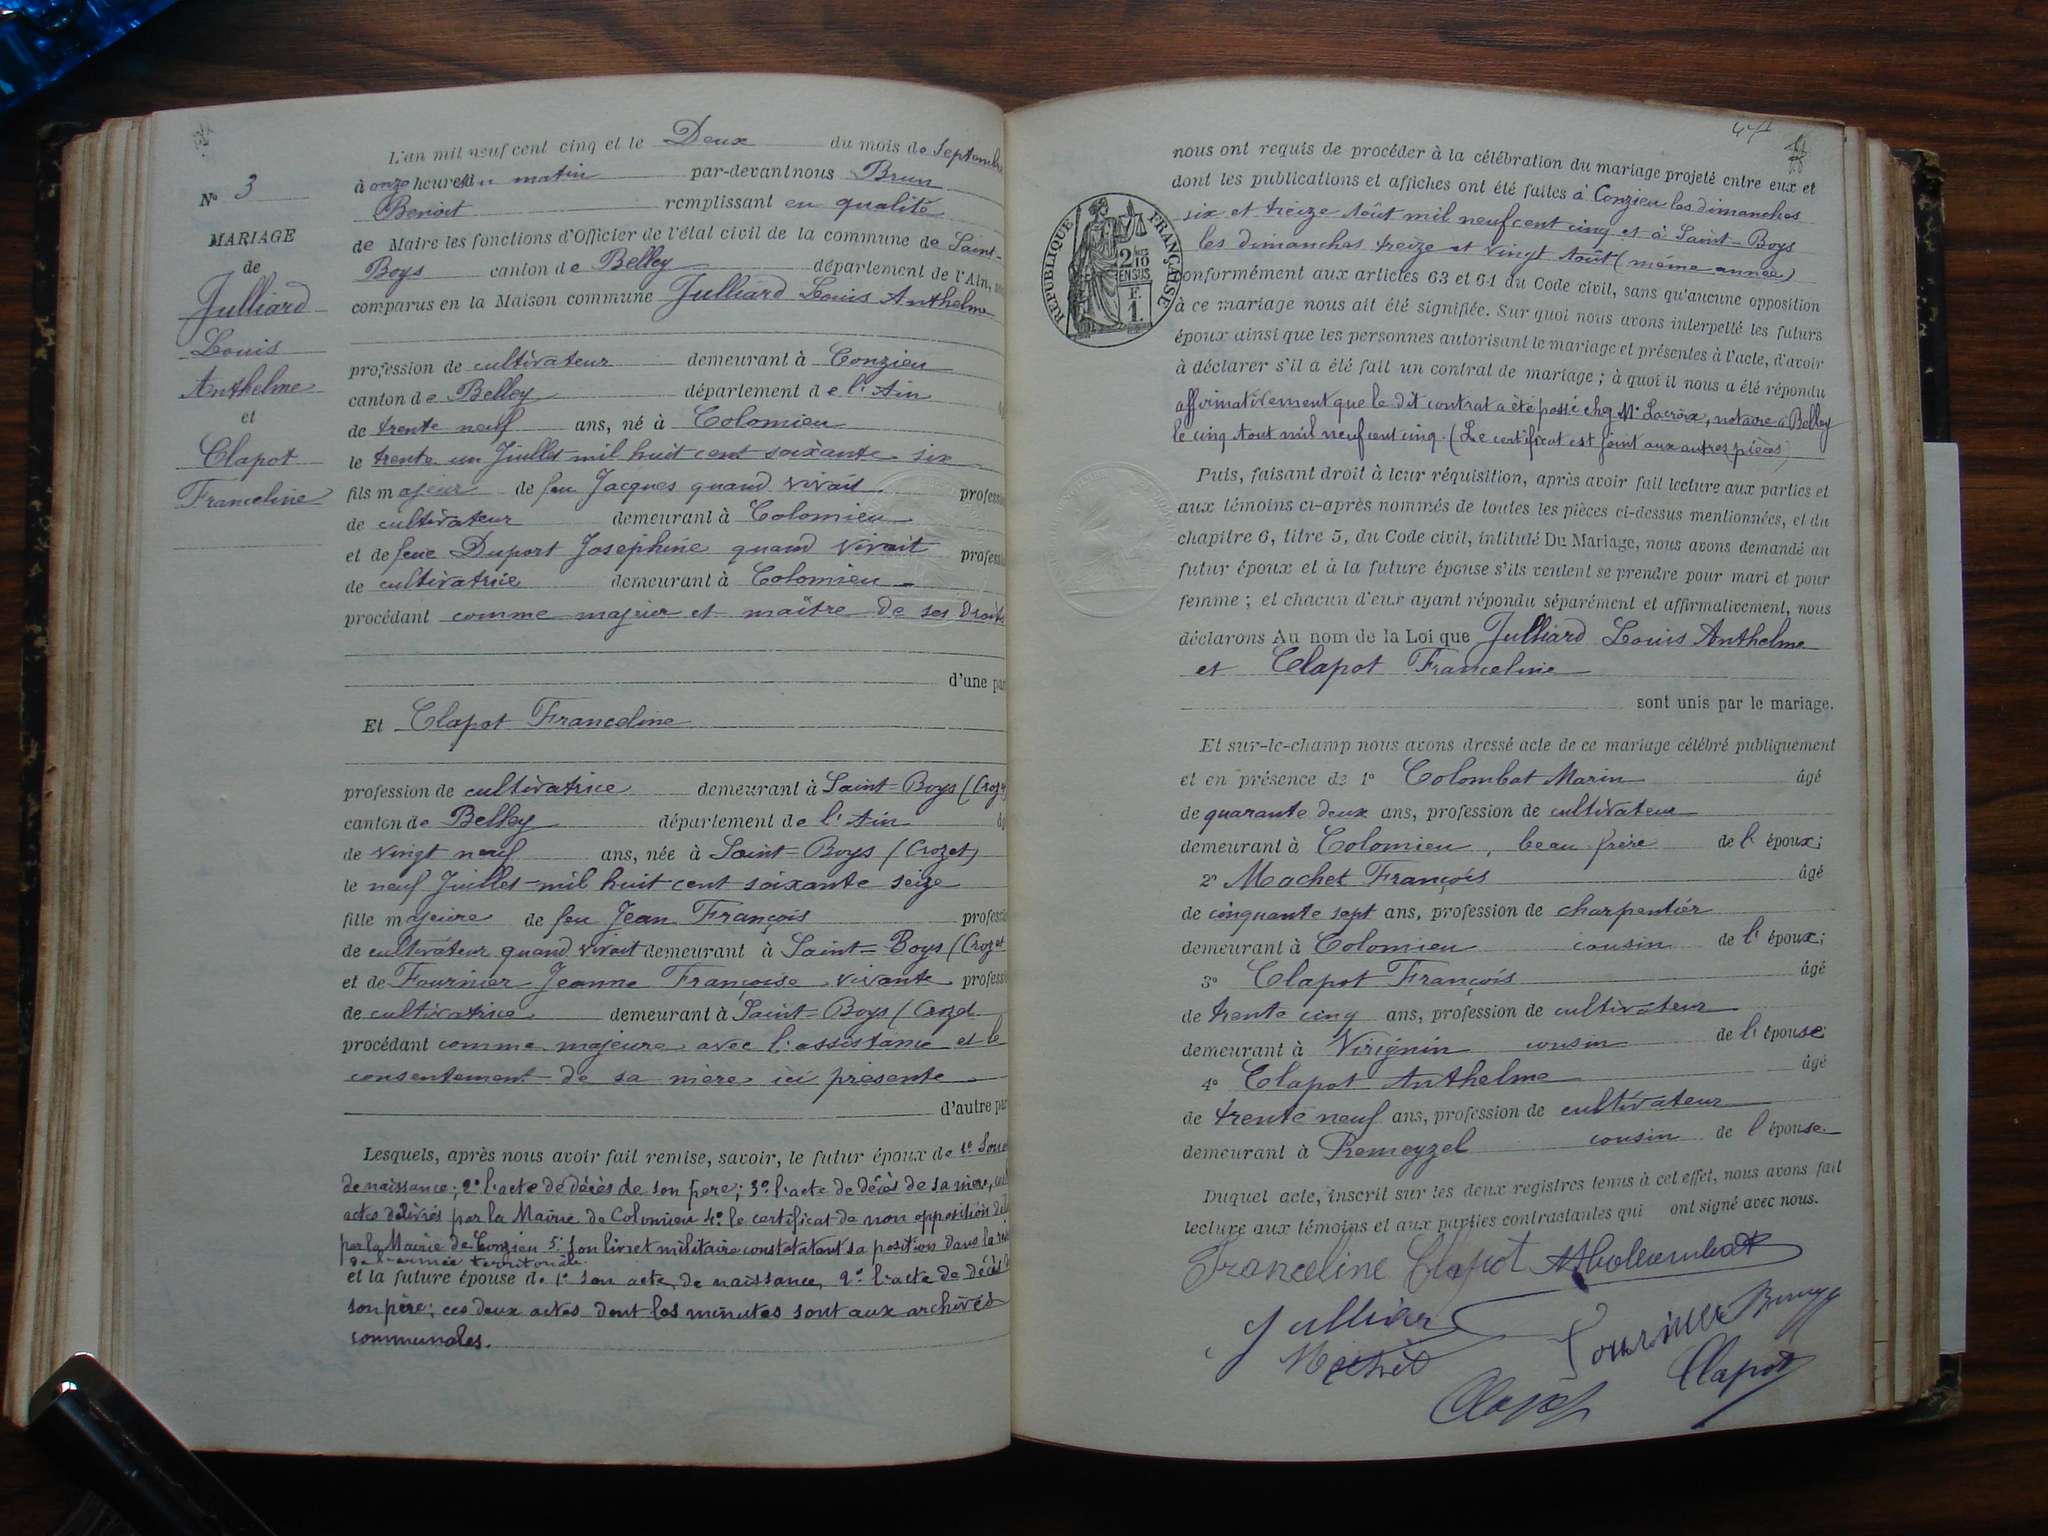 N° 3
MARIAGE
de
Julliard
Louis
Anthelme
et
Clapot
Franceline
L'an mil neuf cent cinq et le Deux du mois de Septembre
à onze heures du matin par-devant nous Brun
Benoit remplissant en qualité
de Maire les fonctions d'Officier de l'état civil de la commune de Saint-
Boys canton de Belley département de l'Ain,
comparus en la Maison commune Julliard Louis Anthelme
profession de cultivateur demeurant à Conzieu
canton de Belley département de l'Ain
de trente neuf ans, né à Colomieu
le trente un Juillet mil huit cent soixante six
fils majeur de feu Jacques quand vivait profess
de cultivateur demeurant à Colomieu
et de feue Duport Josephine quand vivait profess
de cultivatrice demeurant à Colomieu
procédant comme majeur et maître de ses droits
d'une par
Et Clapot Franceline
profession de cultivatrice demeurant à Saint-Boys (Croz
canton de Belley département de l'Ain
de vingt neuf ans, née à Saint-Boys (Crozet)
le neuf Juillet mil huit cent soixante seize
fille majeure de feu Jean François profess
de cultivateur quand vivait demeurant à Saint-Boys (Crozet
et de Fournier Jeanne Françoise vivante profess
de cultivatrice demeurant à Saint-Boys (Crozet
procédant comme majeure avec l'assistance et le
consentement de sa mère ici présente
d'autre par
Lesquels, après nous avoir fait remise, savoir, le futur époux de 1° Son
de naissance; 2° l'acte de décès de son père; 3° l'acte de décès de sa mère,
actes délivrés par la Mairie de Colomieu 4° le certificat de non opposition
par la Mairie de Conzieu 5° Son livret militaire constatatant sa position dans la
de l'armée territoriale
et la future épouse de 1° son acte de naissance, 2° l'acte de décès
son père; ces deux actes dont les minutes sont aux archives
communales.
nous ont requis de procéder à la célébration du mariage projeté entre eux et
dont les publications et affiches ont été faites à Conzieu les dimanches
six et treize Août mil neuf cent cinq et à Saint-Boys
les dimanches treize et vingt Août (même année)
conformément aux articles 63 et 64 du Code civil, sans qu'aucune opposition
à ce mariage nous ait été signifiée. Sur quoi nous avons interpellé les futurs
époux ainsi que les personnes autorisant le mariage et présentes à l'acte, d'avoir
à déclarer s'il a été fait un contrat de mariage; à quoi il nous a été répondu
affirmativement que le dit contrat a été passé chez Mr Lacroix, notaire à Belley
le cinq Aout mil neuf cent cinq. (Le certificat est joint aux autres pièces)
RÉPUBLIQUE FRANÇAISE
2/10 EN SUS
F.
1.
Puis, faisant droit à leur réquisition, après avoir fait lecture aux parties et
aux témoins ci-après nommés de toutes les pièces ci-dessus mentionnées, et du
chapitre 6, titre 5, du Code civil, intitulé Du Mariage, nous avons demandé au
futur époux et à la future épouse s'ils veulent se prendre pour mari et pour
femme; et chacun d'eux ayant répondu séparément et affirmativement, nous
déclarons Au nom de la Loi que Julliard Louis Anthelme
et Clapot Franceline
sont unis par le mariage.
Et sur-le-champ nous avons dressé acte de ce mariage célébré publiquement
et en présence de 1° Colombat Marin âgé
de quarante deux ans, profession de cultivateur
demeurant à Colomieu, beau frère de l'époux;
2° Machet François âgé
de cinquante sept ans, profession de charpentier
demeurant à Colomieu cousin de l'époux;
3° Clapot François âgé
de trente cinq ans, profession de cultivateur
demeurant à Virignin cousin de l'épouse
4° Clapot Anthelme âgé
de trente neuf ans, profession de cultivateur
demeurant à Premeyzel cousin de l'épouse
Duquel acte, inscrit sur les deux registres tenus à cet effet, nous avons fait
lecture aux témoins et aux parties contractantes qui ont signé avec nous.
Franceline Clapot
Julliard
Machet
Clapot
Clapot